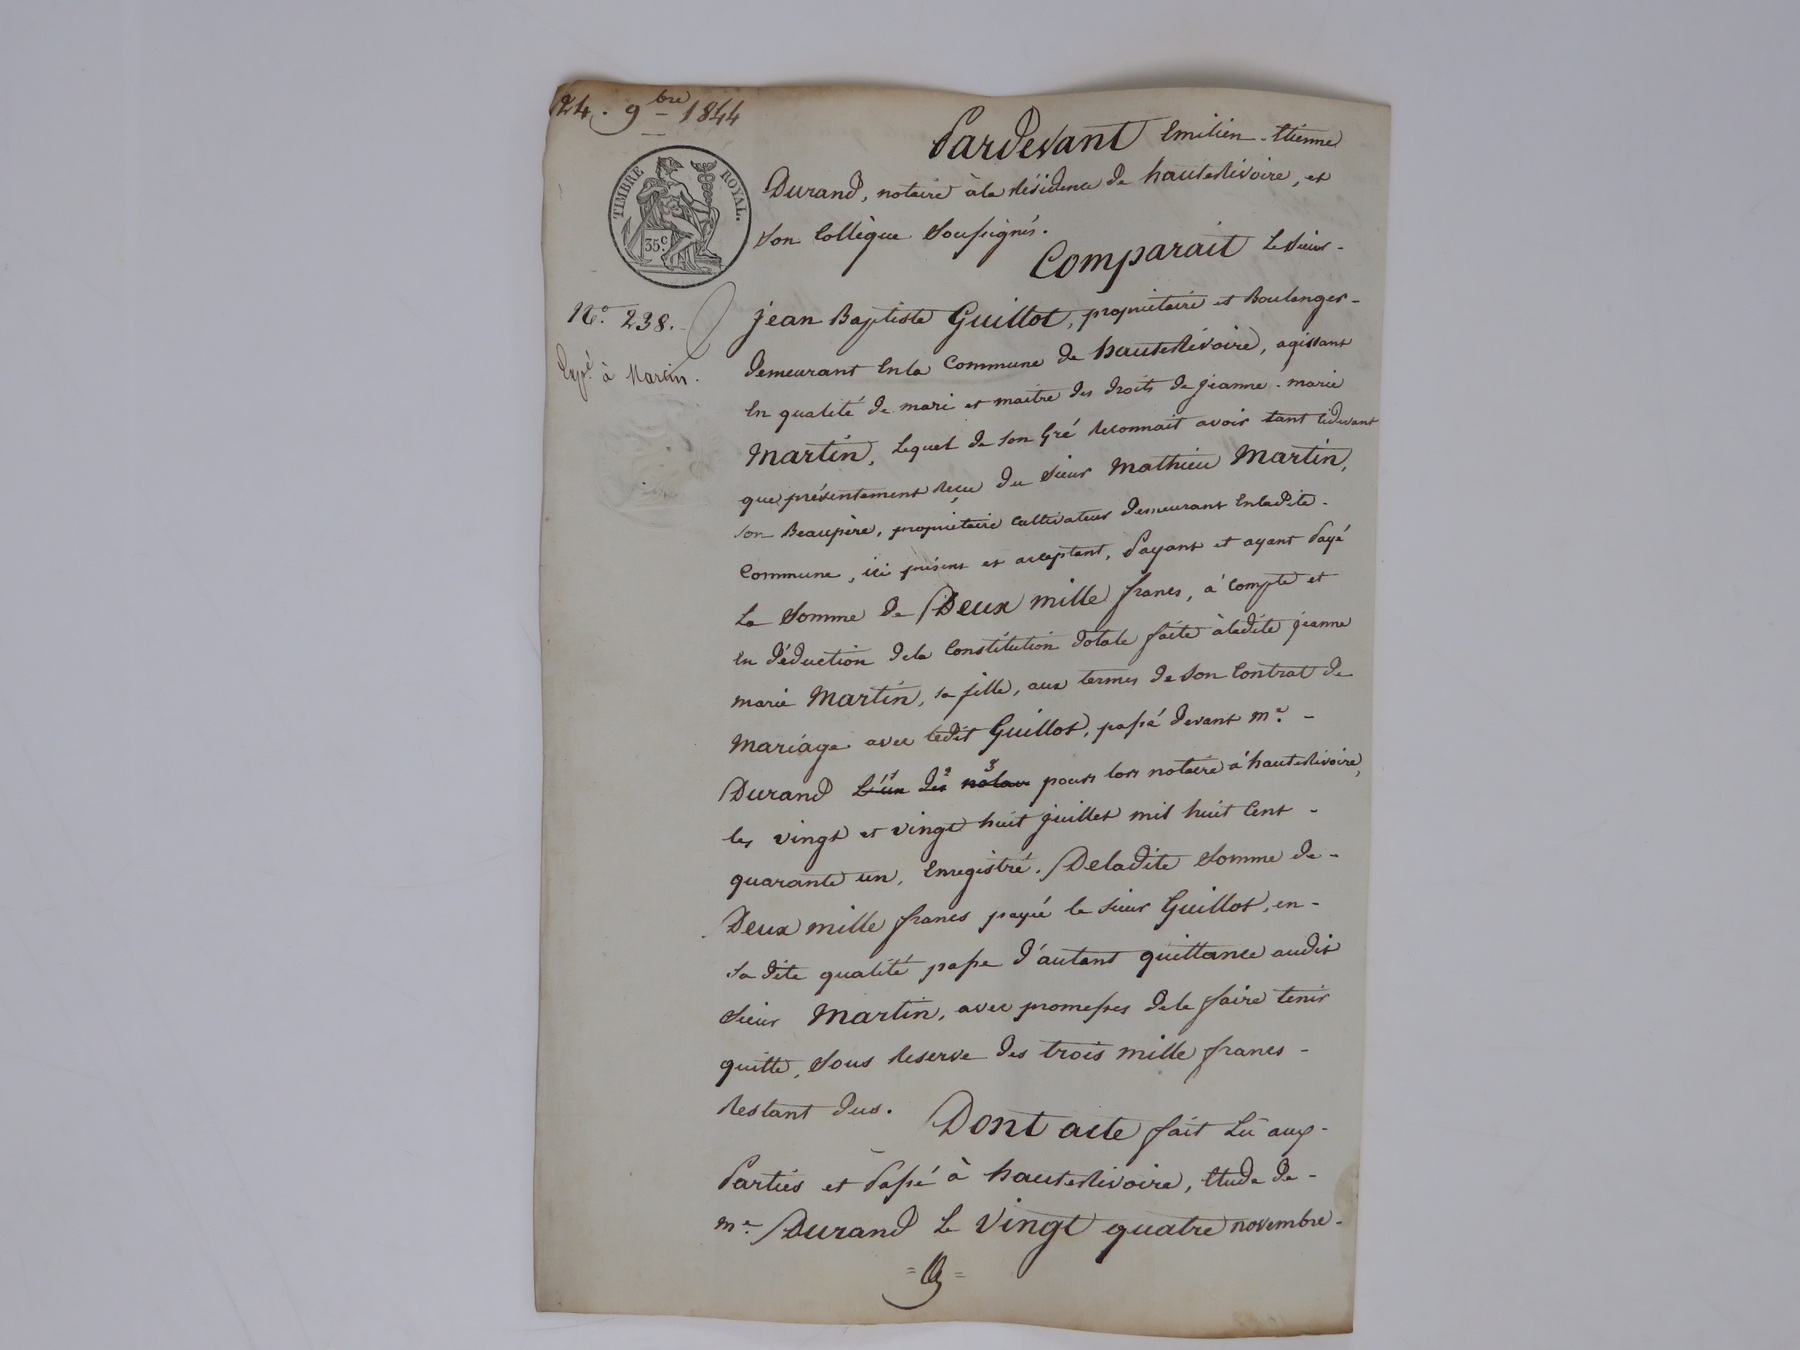 24. 9bre 1844
TIMBRE ROYAL.
35c
No. 238.
Expé. à Martin.
Pardevant Emilien-Etienne
Durand, notaire à la Résidence de hauterivoire, et
son Collègue Soussignés.
Comparait Le sieur-
jean Baptiste Guillot, propriétaire et Boulanger-
demeurant En la Commune de hauterivoire, agissant
En qualité de mari et maitre des droits de jeanne-marie
Martin, Lequel de son Gré Reconnait avoir tant Cidevant
que présentement Reçu du Sieur Mathieu Martin,
son Beaupère, propriétaire Cultivateur demeurant Enladite-
Commune, ici présent et acceptant, Payant et ayant Payé
La Somme de Deux mille francs, à Compte et
En déduction dela Constitution dotale faite àladite jeanne
marie Martin, sa fille, aux termes de son Contrat de
Mariage avec ledit Guillot, passé devant me. -
Durand L'un 1 des 2 notair 3 pour lors notaire à hauterivoire,
les vingt et vingt huit juillet mil huit Cent -
quarante un, Enregistré. Deladite Somme de-
Deux mille francs payée le sieur Guillot, en-
sa dite qualité passe d'autant quittance audit
Sieur Martin, avec promesses dele faire tenir
quitte, Sous Reserve des trois mille francs-
Restant dus.
Dont acte fait Lu aux-
Parties et Passé à hauterivoire, Etude de-
me. Durand Le vingt quatre novembre-